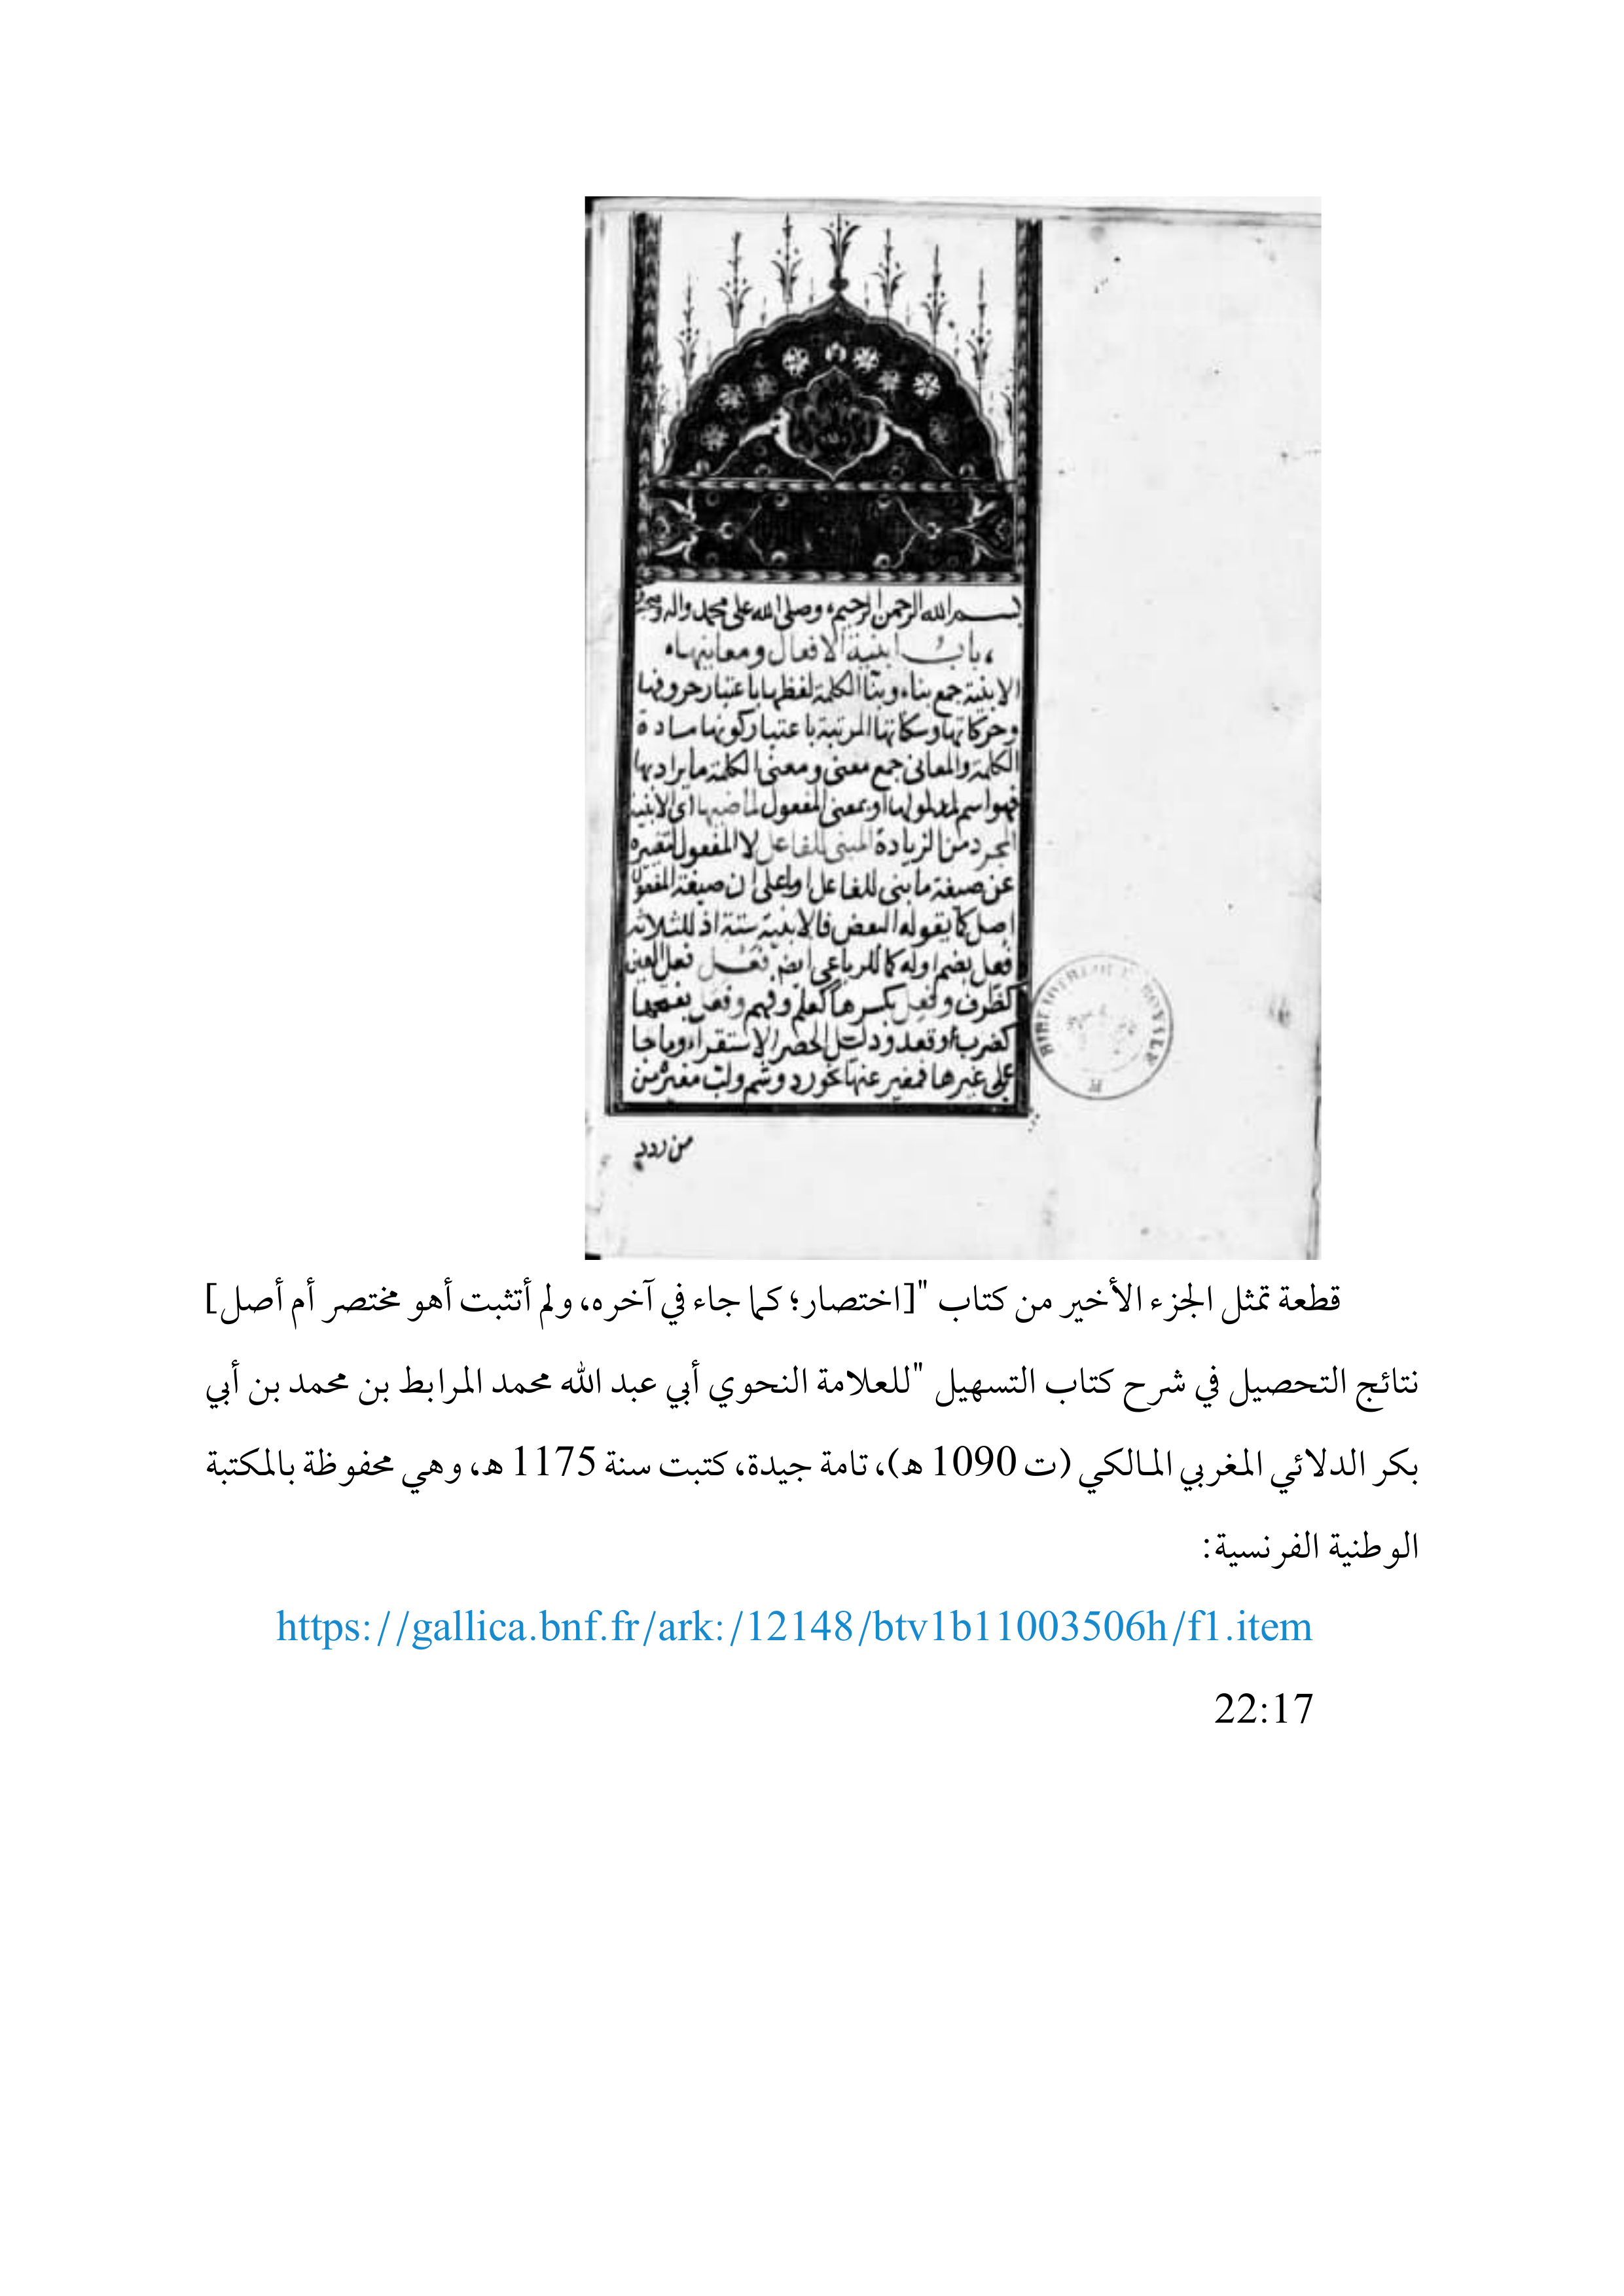 بسم الله الرحمن الرحيم وصلى الله على محمد واله وصحبه
باب ابنية الافعال ومعانيها
الابنية جمع بناء وبنا الكلمة لفظها باعتبار حروفها
وحركاتها وسكناتها المرتبة باعتبار كونها مادة
الكلمة والمعانى جمع معنى ومعنى الكلمة ما يراد بها
فهو اسم لمدلولها او بمعنى المفعول لماضيها اى الابنية
المجرد من الزيادة المبنى للفاعل لا المفعول لتغيره
عن صيغة ما بنى للفاعل او على ان صيغة المفعول
اصل كما يقوله البعض فالابنية ستة اذ للثلاثى
فعل بضم اوله كما للرباعى ايض فعلل فعل العين
كظرف وفعل بكسرها كعلم وفهم وفعل بفتحها
كضرب او قعد ودلت الحصر الاستقراء وما جا
على غيرها فمغير عنها نحو رد وشم ولب مغيره من
من ردد
BIBLIOTHEQUE ROYALE
قطعة تمثل الجزء الأخير من كتاب "[اختصار؛ كما جاء في آخره، ولم أتثبت أهو مختصر أم أصل]
نتائج التحصيل في شرح كتاب التسهيل "للعلامة النحوي أبي عبد الله محمد المرابط بن محمد بن أبي
بكر الدلائي المغربي المالكي (ت 1090 ه)، تامة جيدة، كتبت سنة 1175 ه، وهي محفوظة بالمكتبة
الوطنية الفرنسية:
https://gallica.bnf.fr/ark:/12148/btv1b11003506h/f1.item
22:17